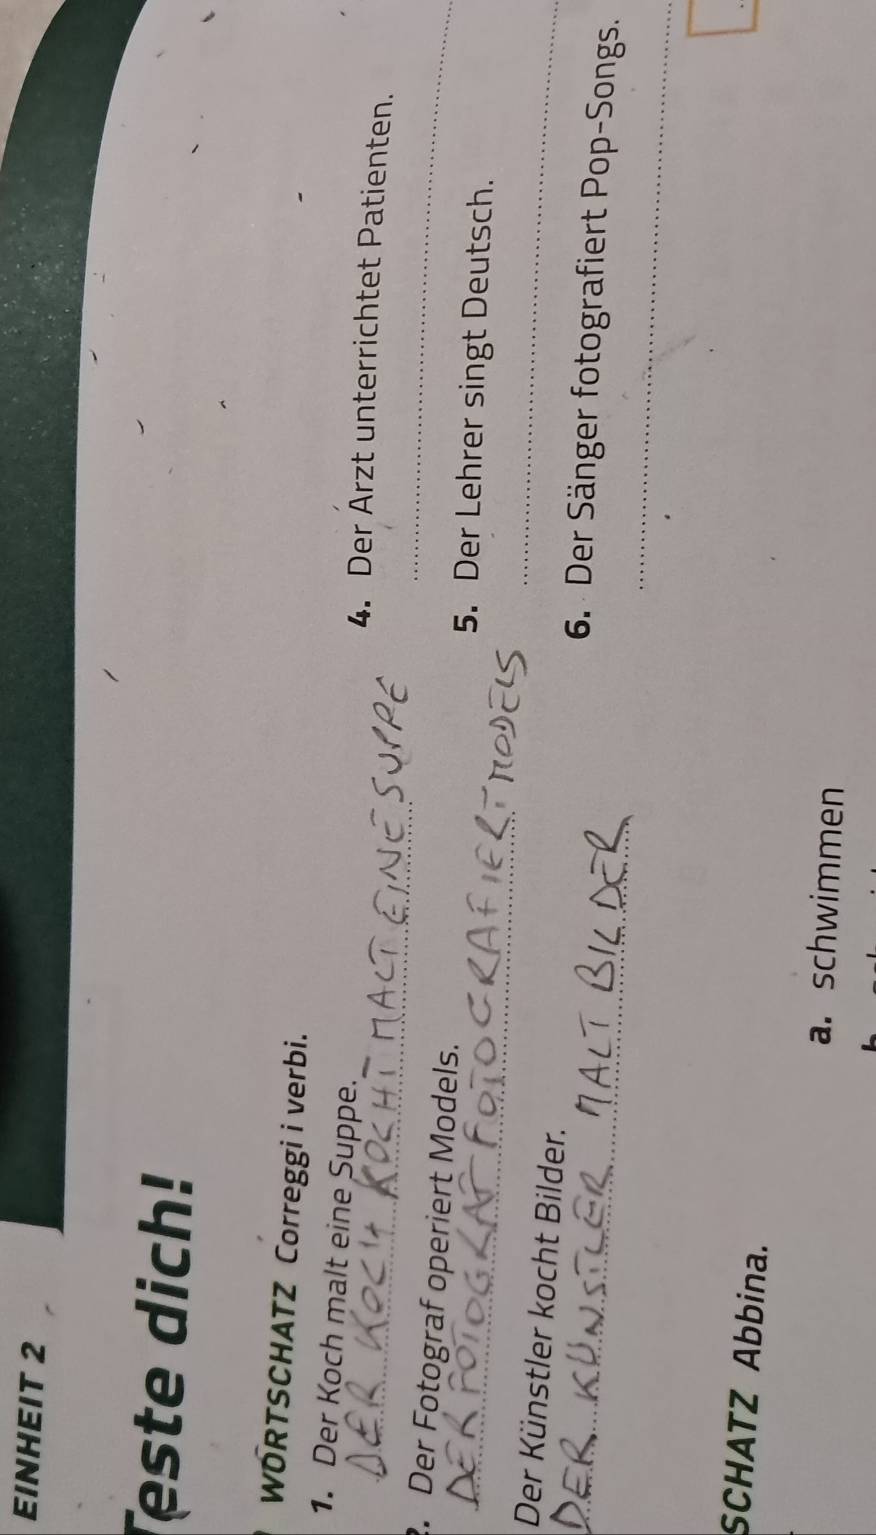 EINHEIT 2
Teste dich!
WORTSCHATZ Correggi i verbi.
1. Der Koch malt eine Suppe.
DER KOCH KOCHT MALT EINE SUPPE
2. Der Fotograf operiert Models.
DER FOTOGRAF FOTOGRAFIERT MODELS
Der Künstler kocht Bilder.
DER KÜNSTLER MALT BILDER
4. Der Arzt unterrichtet Patienten.
5. Der Lehrer singt Deutsch.
6. Der Sänger fotografiert Pop-Songs.
SCHATZ Abbina.
a. schwimmen